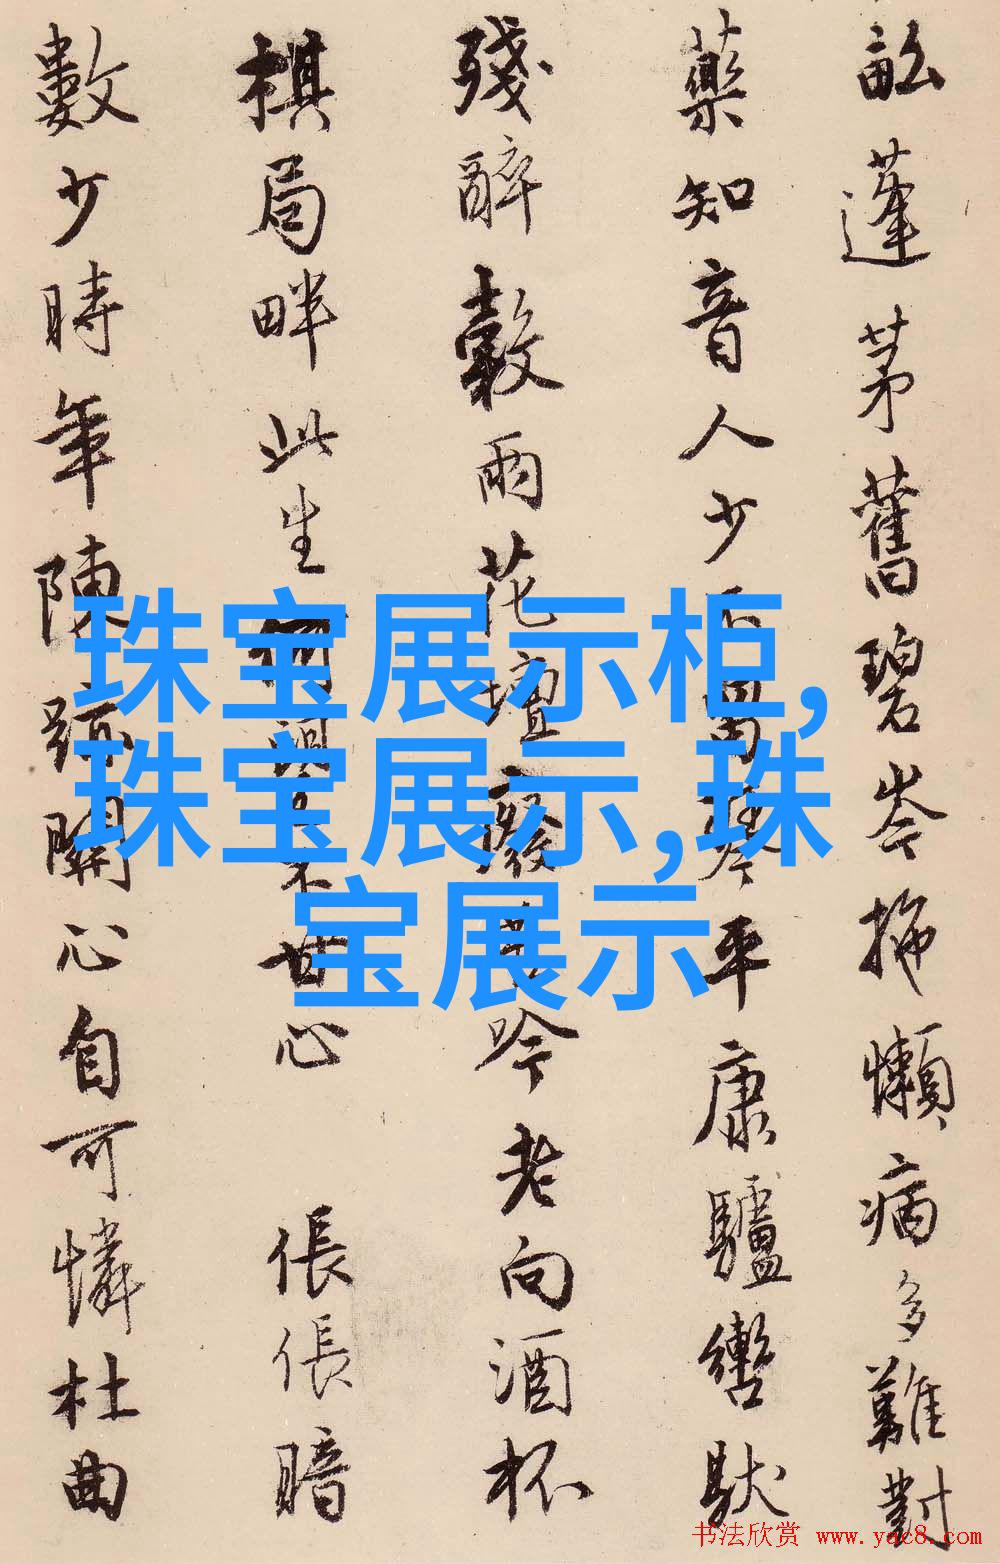 蓬茅舊碧岑拖懶病多難對
藥知音人少不留琴平康驢轡馱
殘醉穀雨花壇吟老向酒杯
棋局畔此生甘心 倀倀暗
數少時年陳跡關心自可憐杜曲
珠宝展示柜,
珠宝展示,珠
宝展示
书法欣赏 www.yac8.com